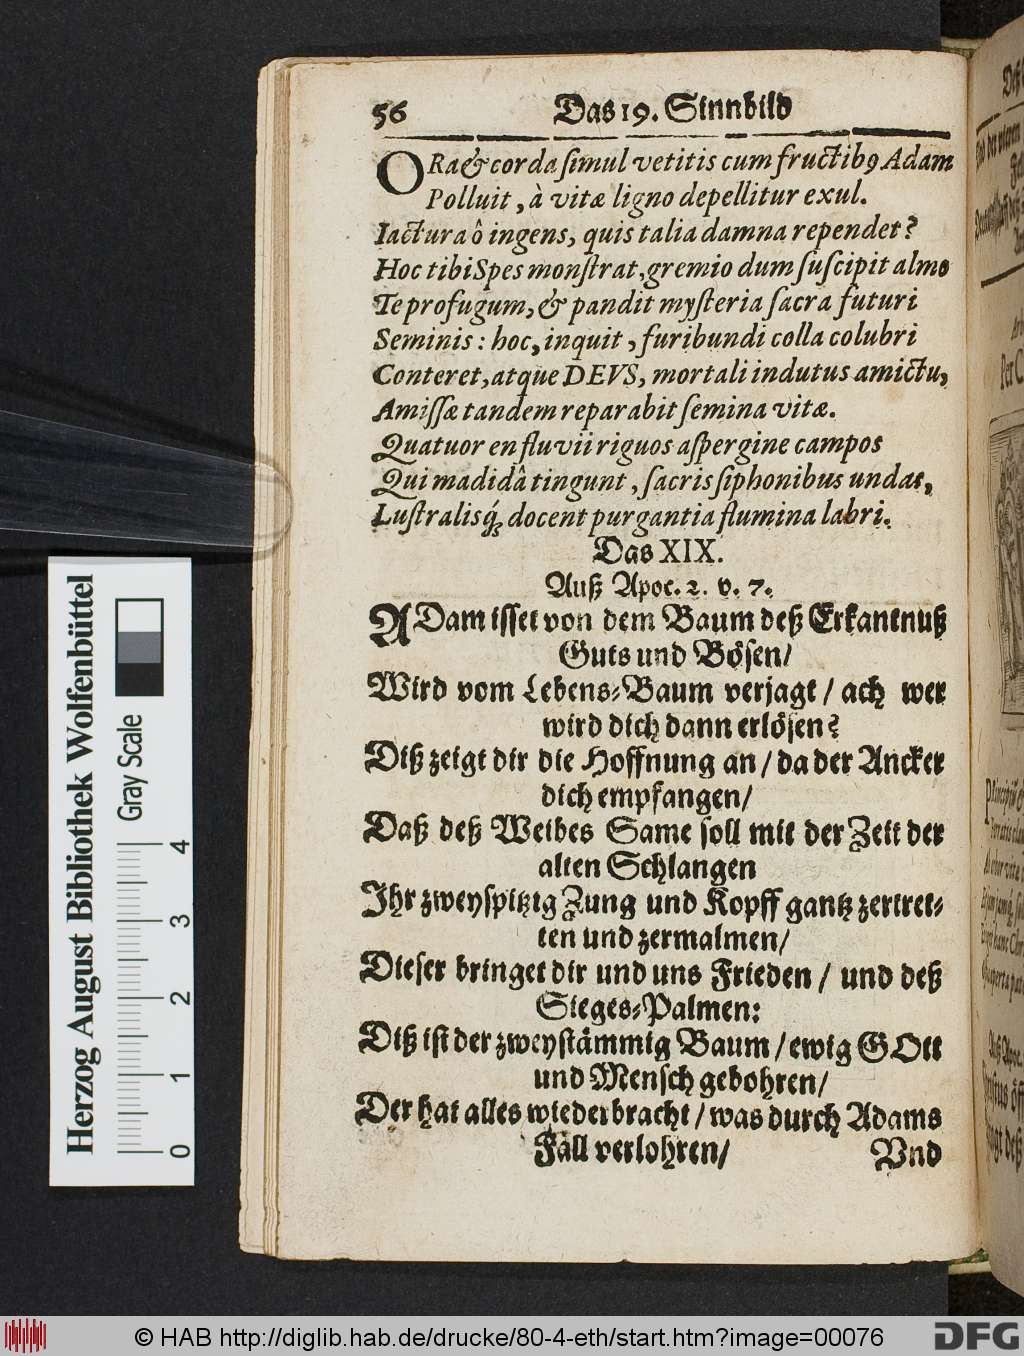 56 Das 19. Sinnbild
ORa & corda ſimul vetitis cum fructibꝰ Adam
Polluit, à vitæ ligno depellitur exul.
Iactura ô ingens, quis talia damna rependet?
Hoc tibi Spes monſtrat, gremio dum ſuſcipit almo
Te profugum, & pandit myſteria ſacra futuri
Seminis: hoc, inquit, furibundi colla colubri
Conteret, atque DEVS, mortali indutus amictu,
Amiſſæ tandem reparabit ſemina vitæ.
Quatuor en fluvii riguos aſpergine campos
Qui madidâ tingunt, ſacris ſiphonibus undas,
Luſtralisq́; docent purgantia flumina labri.
Das XIX.
Auß Apoc. 2. v. 7.
ADam iſſet von dem Baum deß Erkantnuß
Guts und Böſen/
Wird vom Lebens-Baum verjagt / ach wer
wird dich dann erlöſen?
Diß zeigt dir die Hoffnung an / da der Ancker
dich empfangen/
Daß deß Weibes Same ſoll mit der Zeit der
alten Schlangen
Ihr zweyſpitzig Zung und Kopff gantz zertret-
ten und zermalmen/
Dieſer bringet dir und uns Frieden / und deß
Sieges-Palmen:
Diß iſt der zweyſtämmig Baum / ewig GOtt
und Menſch gebohren/
Der hat alles wiederbracht / was durch Adams
Fall verlohren/ Vnd
Herzog August Bibliothek Wolfenbüttel
Gray Scale
0 1 2 3 4
© HAB http://diglib.hab.de/drucke/80-4-eth/start.htm?image=00076
DFG